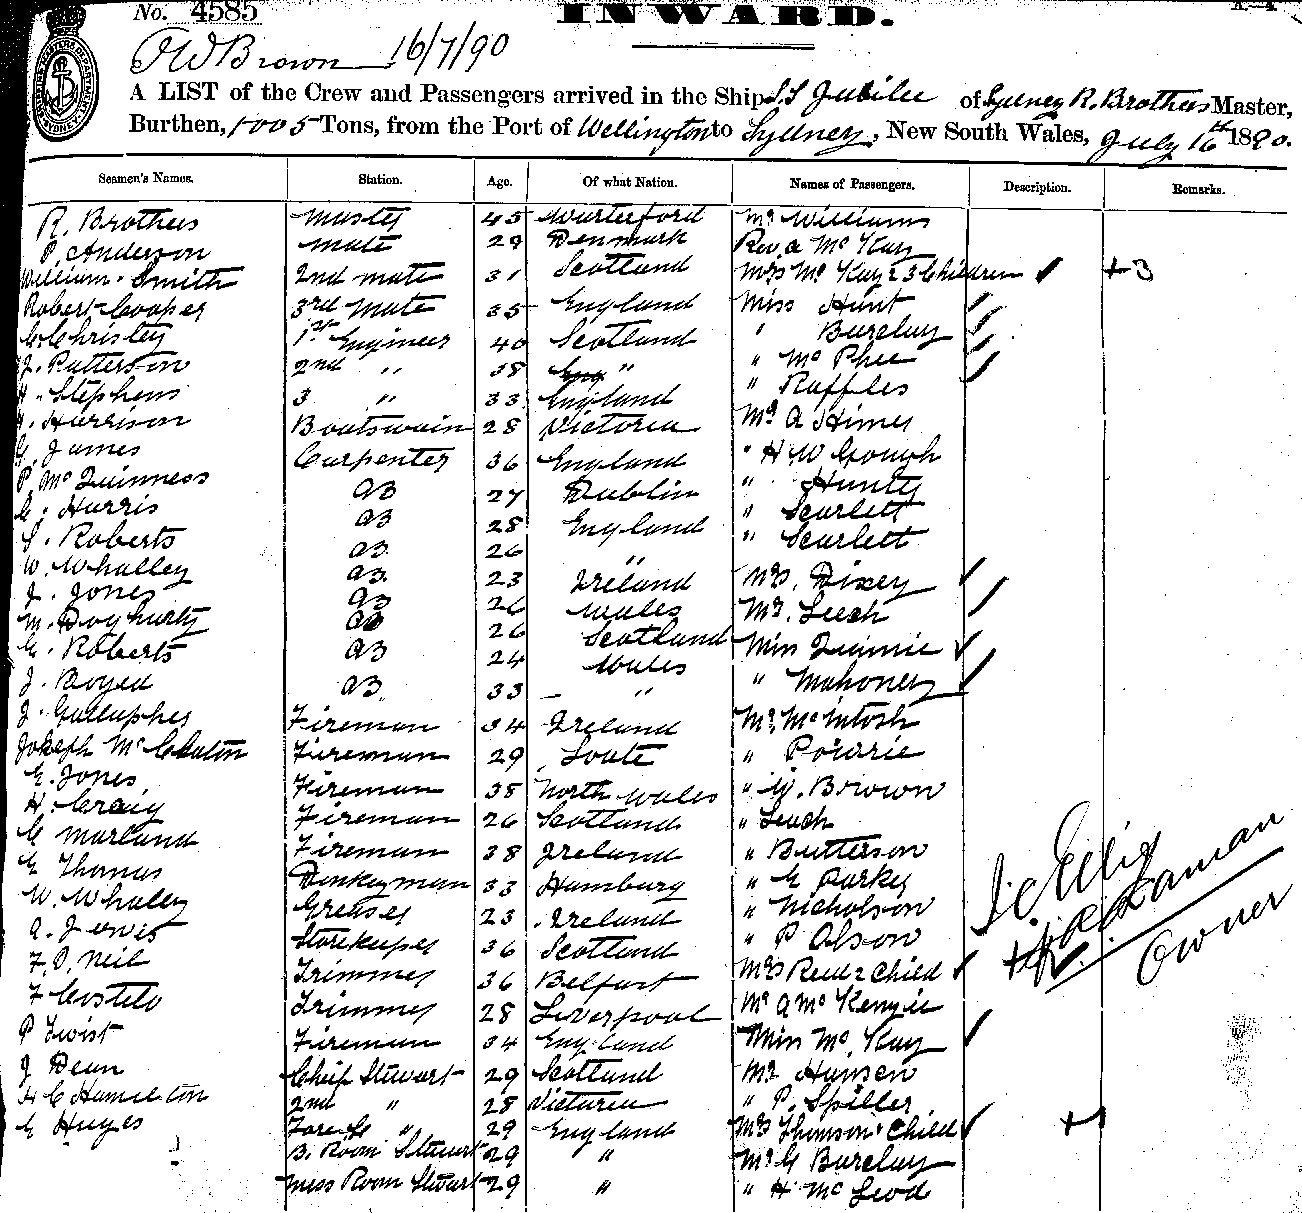 No. 4585 INWARD. A.—4.
J W Brown 16/7/90
A LIST of the Crew and Passengers arrived in the Ship S.S Jubilee of Sydney R. Brothers Master,
Burthen, 1005 Tons, from the Port of Wellington to Sydney, New South Wales, July 16th 1890.
Seamen's Names. Station. Age. Of what Nation. Names of Passengers. Description. Remarks.
R. Brothers Master 45 Waterford Mr Williams
P. Anderson Mate 29 Denmark Rev. A Mc Kay
William Smith 2nd mate 31 Scotland Mrs Mc Kay & 3 Children ✓ + 3
Robert Cooper 3rd Mate 35 England Miss Hunt
C. Christey 1st Engineer 40 Scotland " Barclay
J. Patterson 2nd " 38 " " Mc Phee
H. Stephens 3 " 33 England " Raffles
Harrison Boatswain 28 Victoria Mr A Himes
G. James Carpenter 36 England " H W Gough
P McGuinness AB 27 Dublin " Hunty
C. Harris AB 28 England " Scarlett
S. Roberts AB 26 " " Scarlett
W. Whalley AB 23 Ireland Mrs. Dixey ✓
J. Jones AB 26 Wales Mr. Leech
M. Dogharty AB 26 Scotland Miss Finnie ✓
G. Roberts AB 24 Wales " Mahoney ✓
J. Boyed AB 33 " Mr. McIntosh
J. Gallagher Fireman 34 Ireland " Powrie
Joseph Mc Fireman 29 Loute " W. Brown
E. Jones Fireman 38 North Wales " Leach
H. Craig Fireman 26 Scotland " Butterson
C Marland Fireman 38 Ireland " G Parker
G Thomas Donkeyman 33 Hamburg " Nicholson
W. Whaley Greaser 23 Ireland " P Olson
A. Jones Storekeeper 36 Scotland Mrs Reid & Child ✓
F. O. Neil Trimmer 36 Belfast Mr A McKenzie
F Costelo Trimmer 28 Liverpool Miss Mc Kay ✓
P Twist Fireman 34 England Mr Hansen
J Dean Chief Stewart 29 Scotland " P. Spiller
H C Hamilton 2nd " 28 Victoria Mrs Thomson & Child ✓ + 1
G Hayes " 29 England Mr G Barclay
B. Room Stewart 29 " " H Mc Leod
Mess Room Stewart 29 "
Owner